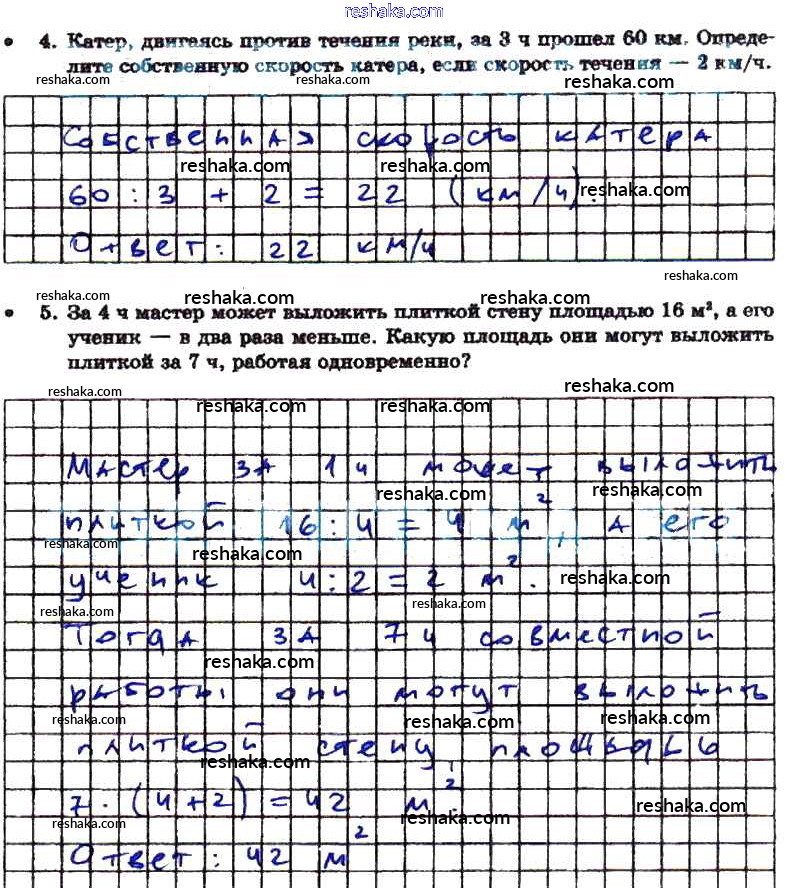 reshaka.com
• 4. Катер, двигаясь против течения реки, за 3 ч прошел 60 км. Опреде-
лите собственную скорость катера, если скорость течения — 2 км/ч.
reshaka.com reshaka.com reshaka.com
Собственная скорость катера
reshaka.com reshaka.com
60 : 3 + 2 = 22 (км/ч).
reshaka.com
Ответ: 22 км/ч
reshaka.com
reshaka.com reshaka.com reshaka.com
• 5. За 4 ч мастер может выложить плиткой стену площадью 16 м², а его
ученик — в два раза меньше. Какую площадь они могут выложить
плиткой за 7 ч, работая одновременно?
reshaka.com reshaka.com reshaka.com reshaka.com
Мастер за 1 ч может выложить
reshaka.com reshaka.com
плиткой 16 : 4 = 4 м², а его
reshaka.com reshaka.com
ученик 4 : 2 = 2 м².
reshaka.com
reshaka.com reshaka.com
Тогда за 7 ч совместной
reshaka.com
работы они могут выложить
reshaka.com reshaka.com reshaka.com
плиткой стену площадью
reshaka.com
7 · (4 + 2) = 42 м².
reshaka.com reshaka.com reshaka.com
Ответ: 42 м²